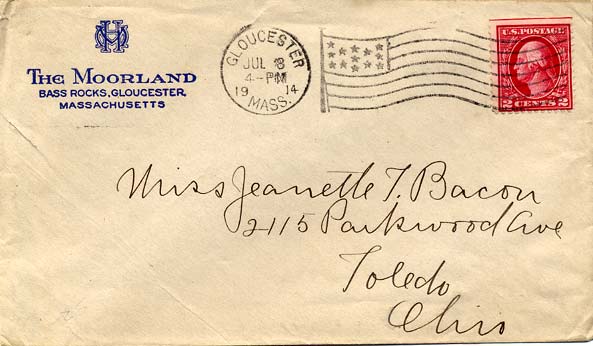 THE MOORLAND
BASS ROCKS, GLOUCESTER,
MASSACHUSETTS
GLOUCESTER
JUL 8
4-PM
19 14
MASS.
U.S. POSTAGE
2 CENTS 2
Miss Jeanette T. Bacon
2115 Parkwood Ave
Toledo
Ohio